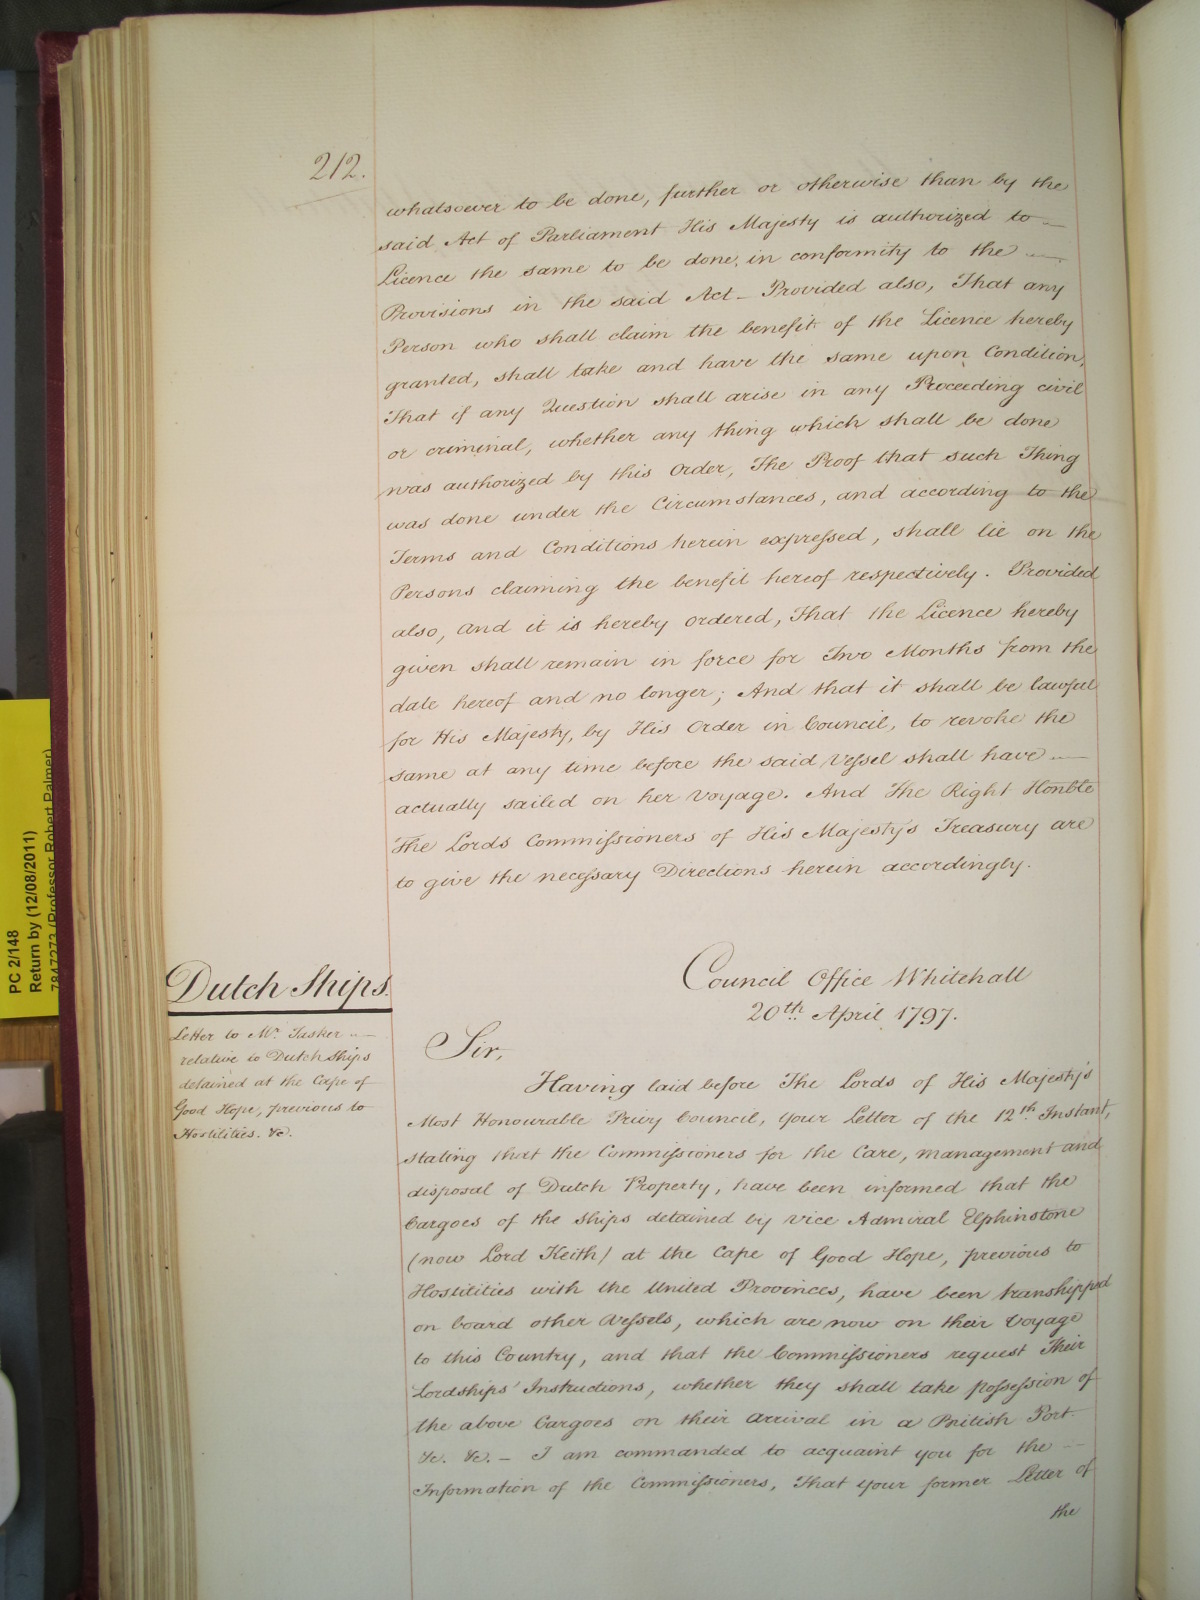 212.
whatsoever to be done, further or otherwise than by the
said Act of Parliament His Majesty is authorized to
Licence the same to be done, in conformity to the
Provisions in the said Act – Provided also, That any
Person who shall claim the benefit of the Licence hereby
granted, shall take and have the same upon Condition,
That if any Question shall arise in any Proceeding civil
or criminal, whether any thing which shall be done
was authorized by this Order, The Proof that such Thing
was done under the Circumstances, and according to the
Terms and Conditions herein expressed, shall lie on the
Persons claiming the benefit hereof respectively. Provided
also, and it is hereby ordered, That the Licence hereby
given shall remain in force for Two Months from the
date hereof and no longer; And that it shall be lawful
for His Majesty, by His Order in Council, to revoke the
same at any time before the said Vessel shall have
actually sailed on her Voyage. And The Right Honble
The Lords Commissioners of His Majesty's Treasury are
to give the necessary Directions herein accordingly.
Dutch Ships.
Letter to Mr. Tasker
relative to Dutch Ships
detained at the Cape of
Good Hope, previous to
Hostilities. &c.
Council Office Whitehall
20th. April 1797.
Sir,
Having laid before The Lords of His Majesty's
Most Honourable Privy Council, your Letter of the 12th. Instant,
stating that the Commissioners for the Care, management and
disposal of Dutch Property, have been informed that the
Cargoes of the Ships detained by Vice Admiral Elphinstone
(now Lord Keith) at the Cape of Good Hope, previous to
Hostilities with the United Provinces, have been transhipped
on board other Vessels, which are now on their Voyage
to this Country, and that the Commissioners request Their
Lordships' Instructions, whether they shall take possession of
the above Cargoes on their arrival in a British Port.
&c. &c. – I am commanded to acquaint you for the
Information of the Commissioners, That your former Letter of
the
PC 2/148
Return by (12/08/2011)
7847273 (Professor Robert Palmer)